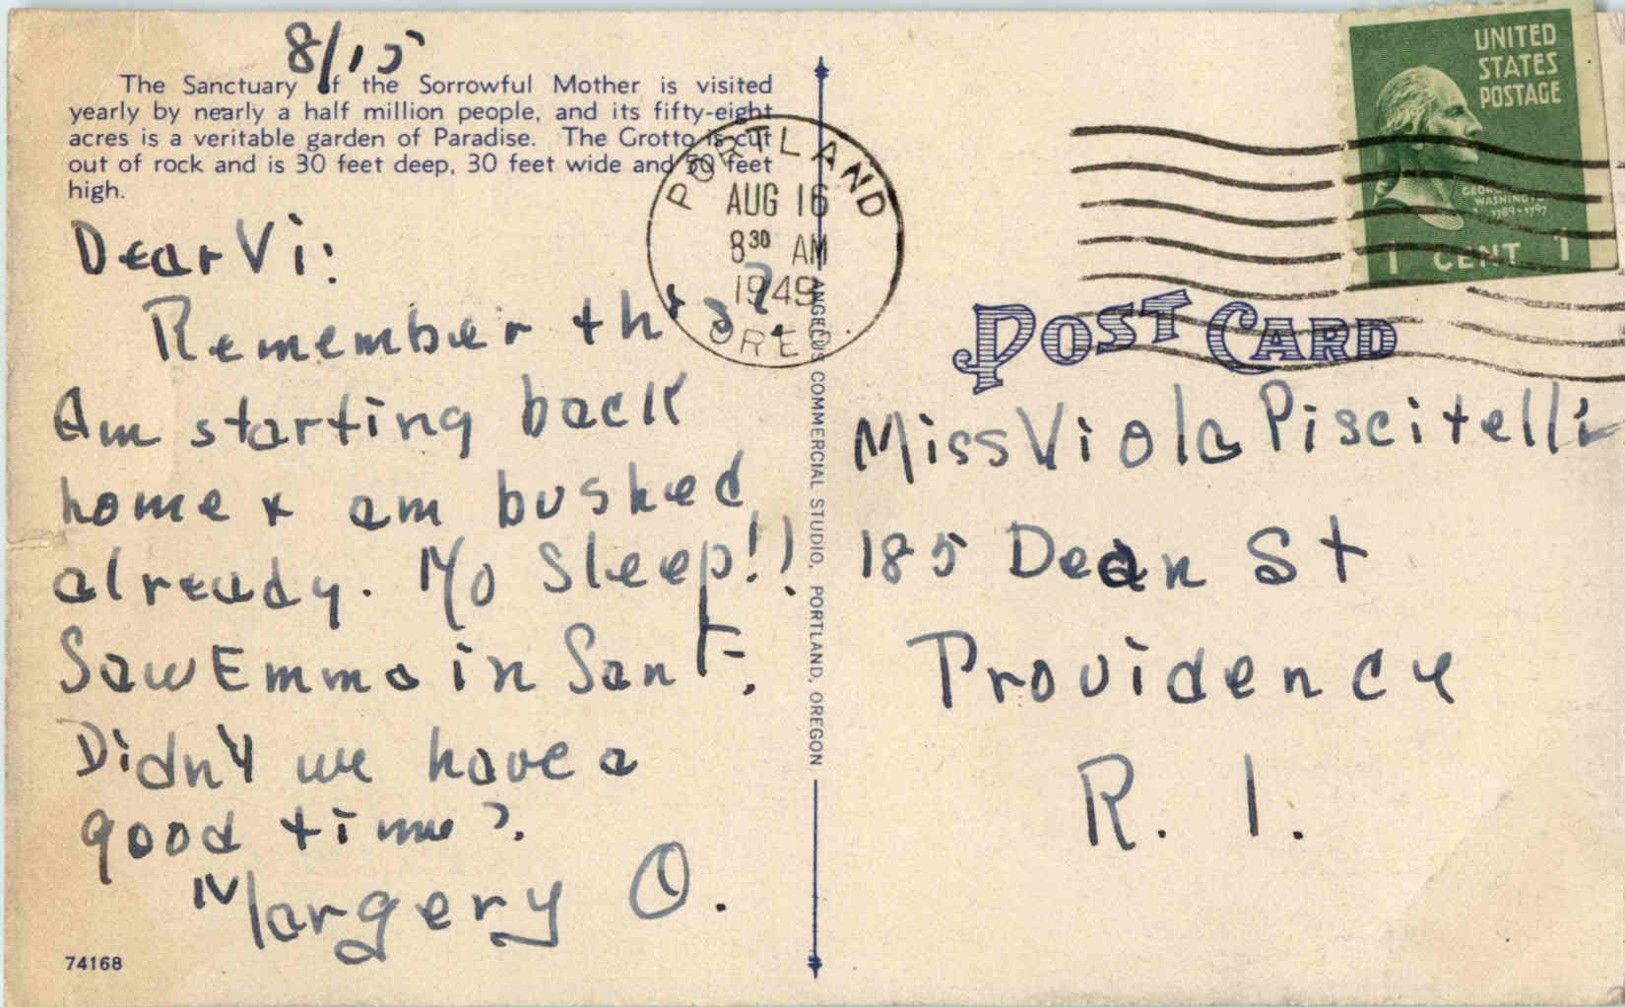 8/15
The Sanctuary of the Sorrowful Mother is visited
yearly by nearly a half million people, and its fifty-eight
acres is a veritable garden of Paradise. The Grotto is cut
out of rock and is 30 feet deep, 30 feet wide and 50 feet
high.
Dear Vi:
Remember this?
Am starting back
home & am bushed
already. No Sleep!!
Saw Emma in San F.
Didn't we have a
good time?.
Margery O.
74168
PORTLAND
AUG 16
8 30 AM
1949
OREG.
ANGELUS COMMERCIAL STUDIO, PORTLAND, OREGON
UNITED
STATES
POSTAGE
GEORGE
WASHINGTON
1789-1797
1 CENT 1
POST CARD
Miss Viola Piscitelli
185 Dean St
Providence
R. I.